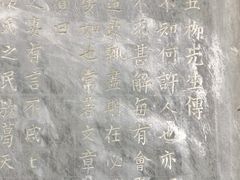 五柳先生傳
不知何許人也亦
求甚解每有會
造飲輒盡期在必
如也常著文章
曰
妻有言不戚
氏之民歟葛天